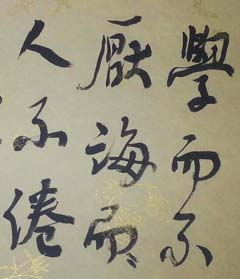 學而不
厭誨而
人不倦